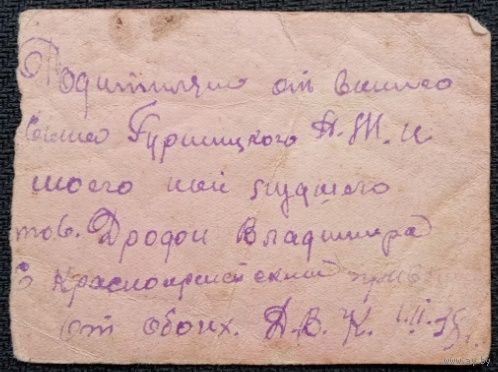 Родителям от вашего
сына Гурницкого А.М. и
моего наи лудшего
тов. Дродои Владимира
З Красноармейский
от обоих. Д. В. К.
www.ay.by